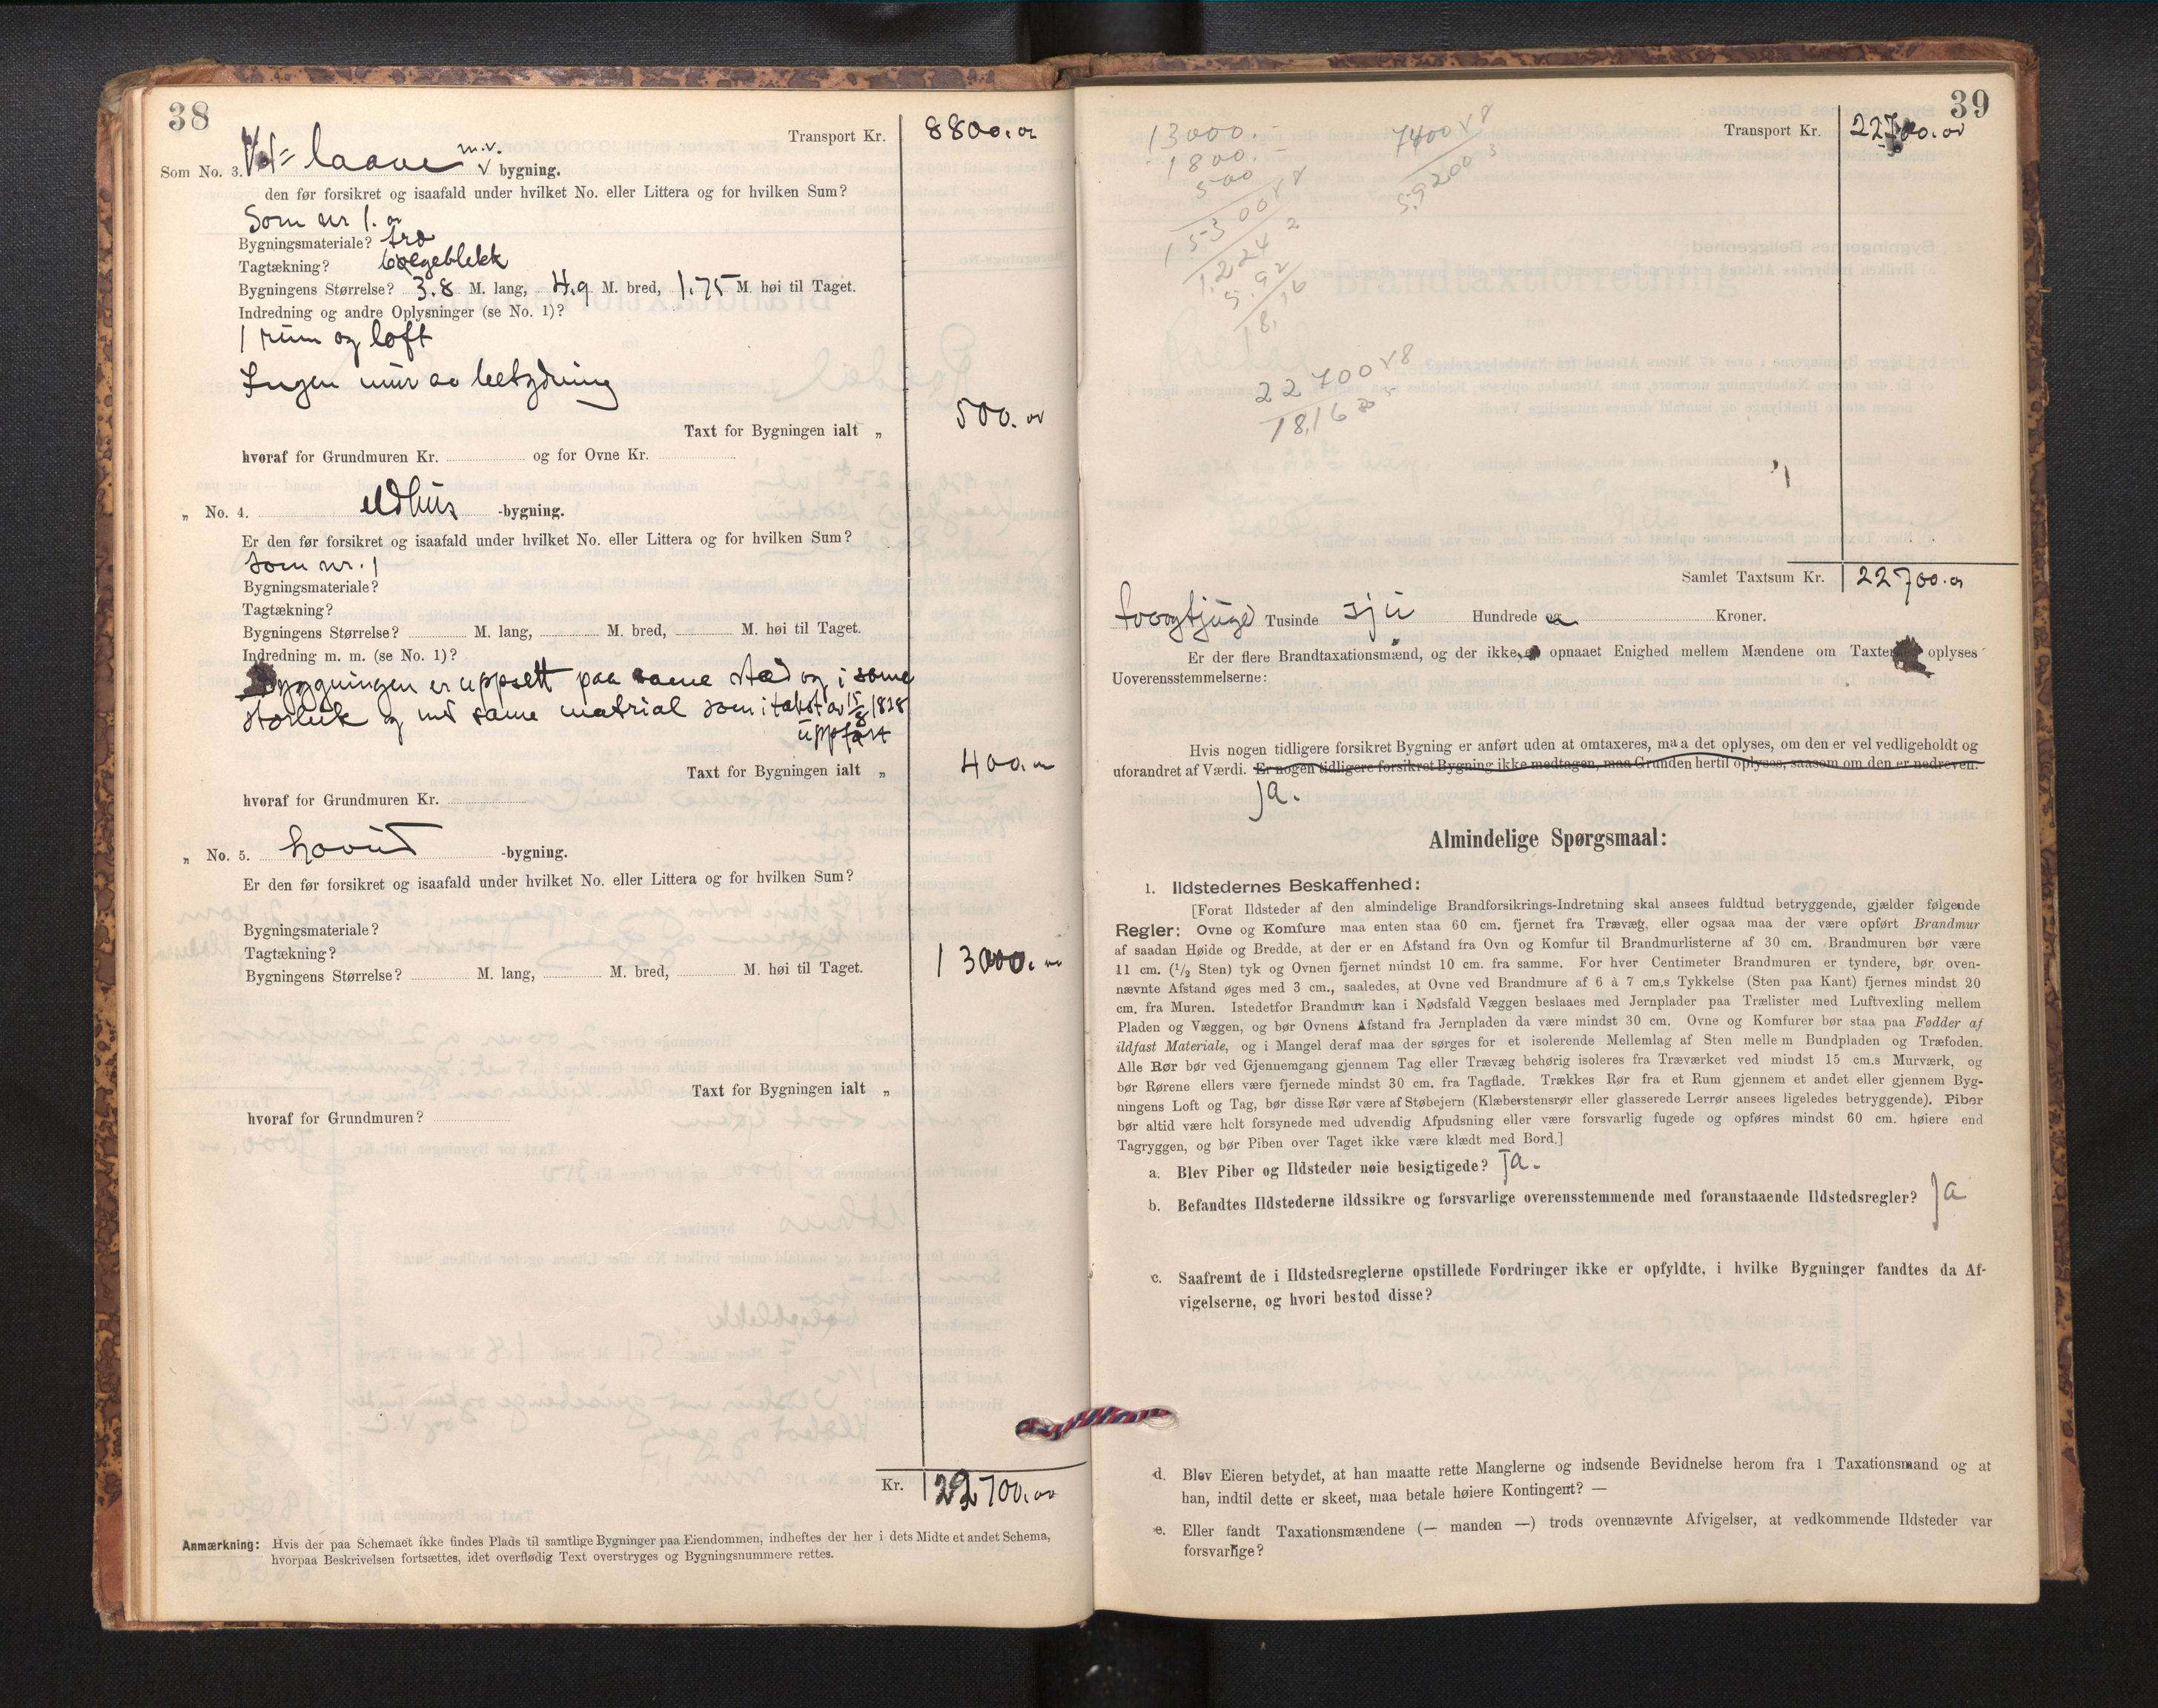 38
Transport Kr. 8800.00
Som No. 3. Ved= laave m.v. bygning.
den før forsikret og isaafald under hvilket No. eller Littera og for hvilken Sum?
Som nr 1.
Bygningsmateriale? tre
Tagtækning? bølgeblekk
Bygningens Størrelse? 3.8 M. lang, 4.9 M. bred, 1.75 M. høi til Taget.
Indredning og andre Oplysninger (se No. 1)?
1 rum og loft
Ingen mur av betydning
500.00
Taxt for Bygningen ialt „
hvoraf for Grundmuren Kr. og for Ovne Kr.
„ No. 4. eldhus -bygning.
Er den før forsikret og isaafald under hvilket No. eller Littera og for hvilken Sum?
Som nr. 1
Bygningsmateriale?
Tagtækning?
Bygningens Størrelse? M. lang, M. bred, M. høi til Taget.
Indredning m. m. (se No. 1)?
Byggningen er uppsett paa same stad og i same
storleik og med same matrial som i takst av 15/8 1828
uppført
Taxt for Bygningen ialt „ 400.00
hvoraf for Grundmuren Kr.
„ No. 5. -bygning.
Er den før forsikret og isaafald under hvilket No. eller Littera og for hvilken Sum?
Bygningsmateriale?
Tagtækning?
Bygningens Størrelse? M. lang, M. bred, M. høi til Taget. 13000.00
Taxt for Bygningen ialt „
hvoraf for Grundmuren?
Kr. 22700.00
Anmærkning: Hvis der paa Schemaet ikke findes Plads til samtlige Bygninger paa Eiendommen, indheftes der her i dets Midte et andet Schema,
hvorpaa Beskrivelsen fortsættes, idet overflødig Text overstryges og Bygningsnummere rettes.
39
Transport Kr. 22700.00
13000.-
1800.-
500
15300 x 8
1.224 2
5.92
18,16
7400 x 8
59200 3
22700 x 8
1816
Samlet Taxtsum Kr. 22700.00
tvoogtjuge Tusinde sju Hundrede og Kroner.
Er der flere Brandtaxationsmænd, og der ikke er opnaaet Enighed mellem Mændene om Taxten, oplyses
Uoverensstemmelserne:
Hvis nogen tidligere forsikret Bygning er anført uden at omtaxeres, maa det oplyses, om den er vel vedligeholdt og
uforandret af Værdi. Er nogen tidligere forsikret Bygning ikke medtagen, maa Grunden hertil oplyses, saasom om den er nedreven.
Ja.
Almindelige Spørgsmaal:
1. Ildstedernes Beskaffenhed:
[Forat Ildsteder af den almindelige Brandforsikrings-Indretning skal ansees fuldtud betryggende, gjælder følgende
Regler: Ovne og Komfure maa enten staa 60 cm. fjernet fra Trævæg, eller ogsaa maa der være opført Brandmur
af saadan Høide og Bredde, at der er en Afstand fra Ovn og Komfur til Brandmurlisterne af 30 cm. Brandmuren bør være
11 cm. (1/2 Sten) tyk og Ovnen fjernet mindst 10 cm. fra samme. For hver Centimeter Brandmuren er tyndere, bør oven-
nævnte Afstand øges med 3 cm., saaledes, at Ovne ved Brandmure af 6 à 7 cm.s Tykkelse (Sten paa Kant) fjernes mindst 20
cm. fra Muren. Istedetfor Brandmur kan i Nødsfald Væggen beslaaes med Jernplader paa Trælister med Luftvexling mellem
Pladen og Væggen, og bør Ovnens Afstand fra Jernpladen da være mindst 30 cm. Ovne og Komfurer bør staa paa Fødder af
ildfast Materiale, og i Mangel deraf maa der sørges for et isolerende Mellemlag af Sten mellem Bundpladen og Træfoden.
Alle Rør bør ved Gjennemgang gjennem Tag eller Trævæg behørig isoleres fra Træværket ved mindst 15 cm.s Murværk, og
bør Rørene ellers være fjernede mindst 30 cm. fra Tagflade. Trækkes Rør fra et Rum gjennem et andet eller gjennem Byg-
ningens Loft og Tag, bør disse Rør være af Støbejern (Klæberstensrør eller glasserede Lerrør ansees ligeledes betryggende). Piber
bør altid være helt forsynede med udvendig Afpudsning eller være forsvarlig fugede og opføres mindst 60 cm. høiere end
Tagryggen, og bør Piben over Taget ikke være klædt med Bord.]
a. Blev Piber og Ildsteder nøie besigtigede? Ja.
b. Befandtes Ildstederne ildssikre og forsvarlige overensstemmende med foranstaaende Ildstedsregler? Ja
c. Saafremt de i Ildstedsreglerne opstillede Fordringer ikke er opfyldte, i hvilke Bygninger fandtes da Af-
vigelserne, og hvori bestod disse?
d. Blev Eieren betydet, at han maatte rette Manglerne og indsende Bevidnelse herom fra 1 Taxationsmand og at
han, indtil dette er skeet, maa betale høiere Kontingent? —
e. Eller fandt Taxationsmændene (— manden —) trods ovennævnte Afvigelser, at vedkommende Ildsteder var
forsvarlige?